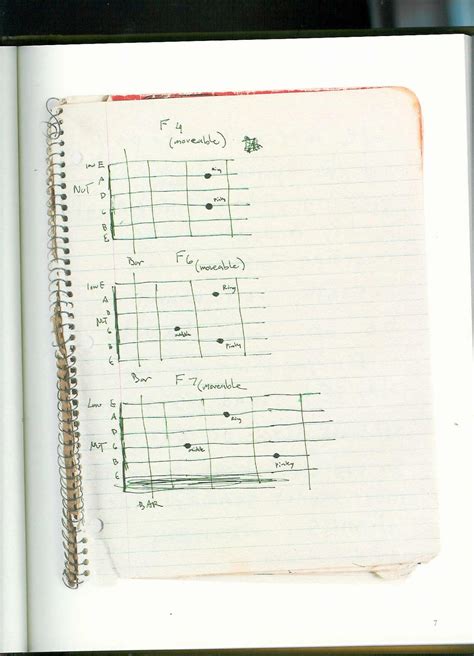 F 4
(moveable)
low E
Ring
A
NUT
D
Pinky
G
B
E
Bar F6 (moveable)
low E
Ring
A
D
NUT
middle
G
B
Pinky
E
Bar F7 (moveable
Low E
A
Ring
D
NUT
G
middle
B
Pinky
E
BAR
7